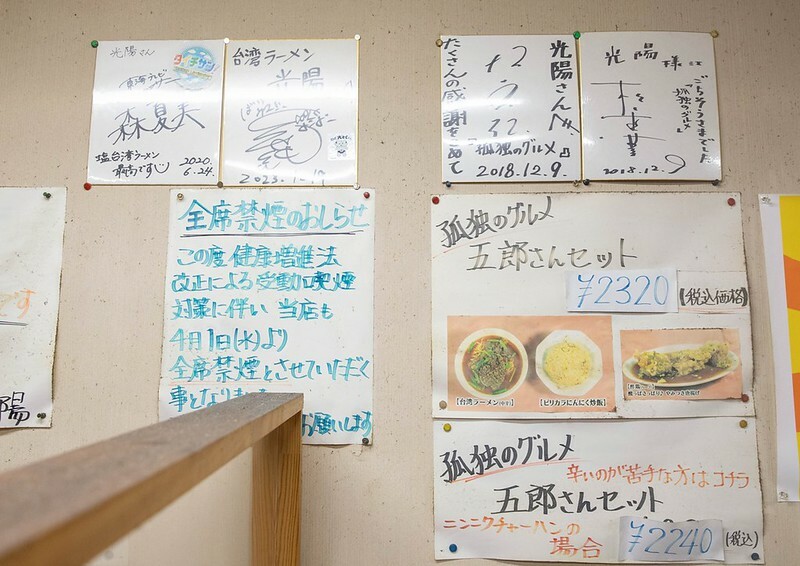 光陽さん
森夏夫
塩台湾ラーメン
最高です
2020.
6.24.
台湾ラーメン
光陽
光陽さんへ
『孤独のグルメ』
2018.12.9.
たくさんの感謝を込めて
光陽様江
ごちそうさまでした
『孤独のグルメ』
2018.12.9
全席禁煙のおしらせ
この度健康増進法
改正による受動喫煙
対策に伴い 当店も
4月1日(水)より
全席禁煙とさせていただく
事となりま
お願いします
孤独のグルメ
五郎さんセット
¥2320
【税込価格】
【台湾ラーメン
【ピリカラにんにく炒飯】
孤独のグルメ
辛いのが苦手な方はコチラ
五郎さんセット
ニンニクチャーハンの
場合
¥2240
(税込)
です
陽